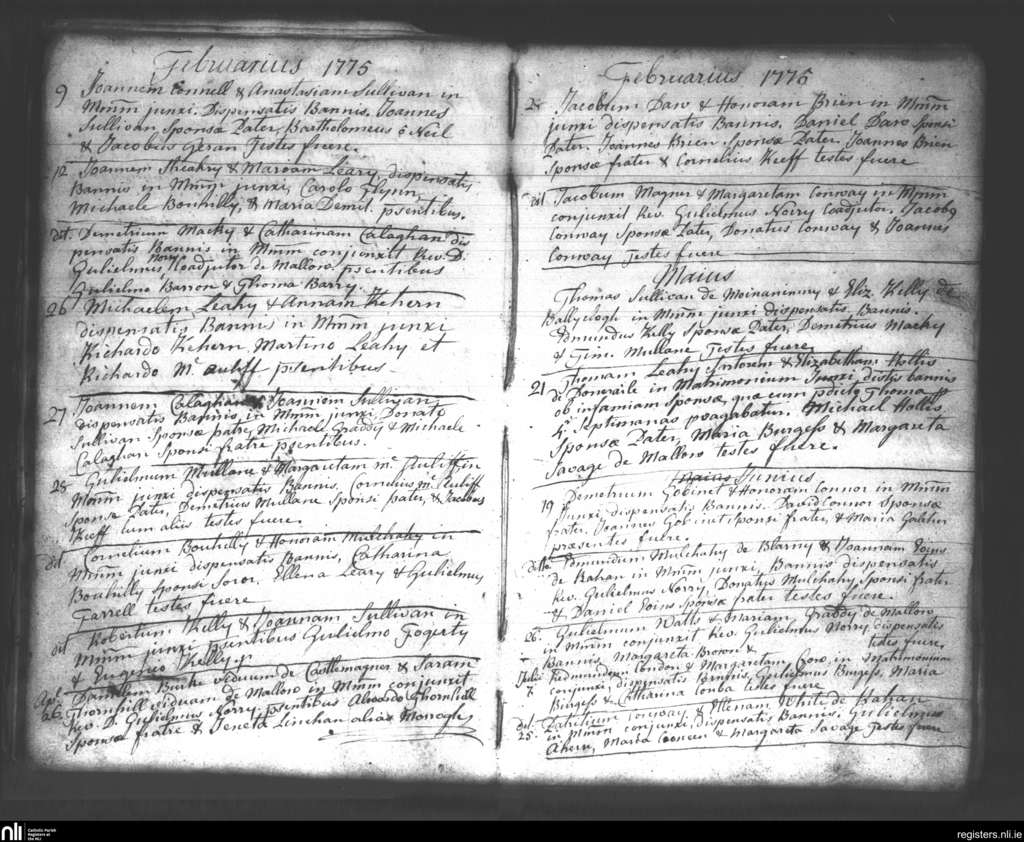 Februarius 1775
9 Joannem Connell & Anastasiam Sullivan in
Mmm junxi. Dispensatis Bannis. Joannes
Sullivan Sponsæ Pater, Bartholomeus ô Neil
& Jacobus Geran Testes fuere.
12 Joannem Sheahy & Mariam Leary dispensatis
Bannis in Mmm junxi, Carolo Flynn
Michaele Bouhilly, & Maria Demil. psentibus.
dit. Demetrium Macky & Catharinam Calaghan dis
pensatis Bannis in Mmm conjunxit Rev. D.
Gulielmus Nory Coadjutor de Mallow. psentibus
Gulielmo Barron & Thoma Barry.
26 Michaelem Leahy & Annam Kehern
dispensatis Bannis in Mmm junxi
Richardo Kehern, Martino Leahy et
Richardo Mc. auliff psentibus
27 Joannem Calaghan & Joannam Sullivan
dispensatis Bannis, in Mmm junxi, Donato
Sullivan Sponsæ patre, Michaele Graddy & Michaele
Calaghan Sponsi fratre psentibus.
28 Gulielmum Mullane & Margaretam mc. Auliff in
Mmm junxi dispensatis Bannis, Cornelius mc. Auliff
Sponsæ Pater, Demetrius Mullane Sponsi pater, & Jacobus
Kieff cum aliis testes fuere.
dit Cornelium Bouhilly & Honoram Mulchahy in
Mmm junxi dispensatis Bannis, Catharina
Bouhilly Sponsi Soror, Ellena Leary & Gulielmus
Farrell testes fuere
dit Robertum Kelly & Joannam Sullivan in
Mmm junxi psentibus Gulielmo Fogerty
& Eugenio Kelly.
Apl. 26 Danielem Burke viduum de Castlemagner & Saram
Thornhill viduam de Mallow in Mmm conjunxit
Rev. D. Gulielmus Norry. psentibus Thornhill
Sponsæ fratre & Jeneta Linehan alias Morrogh
Februarius 1775
28 Jacobum Daw & Honoram Brien in Mmm
junxi dispensatis Bannis. Daniel Daw Sponsi
Pater. Joannes Brien Sponsæ Pater, Joannes Brien
Sponsæ frater & Cornelius Kieff testes fuere
dit Jacobum Magner & Margaretam Conway in Mmm
conjunxit Rev. Gulielmus Noiry Coadjutor. Jacobus
Conway Sponsæ Pater, Donatus Conway & Joannes
Conway Testes fuere
Maius
Thomas Sullivan de Moinanimny & Eliz. Kelly de
Ballyclogh in Mmm junxi dispensatis Bannis.
Edmundus Kelly Sponsæ Pater, Demetrius Macky
& Tim. Mullane Testes fuere
21 Thomam Leahy & Elizabetham Hollis
de Doneraile in Matrimonium Junxi, distis bannis
ob infamiam Sponsæ, quæ cum Thoma
4r. Septimanas pvagabatur. Michael Hollis
Sponsæ Pater, Maria Burgess & Margareta
Savage de Mallow testes fuere.
Junius
19 Demetrium Gobinet & Honoram Connor in Mmm
Junxi dispensatis Bannis. David Connor Sponsæ
frater, Joannes Gobinet Sponsi frater, & Maria Galeher
præsentes fuere.
Edmundum Mulchahy de Blarny & Joannam Goins
de Rahan in Mmm junxi, Bannis dispensatis
Rev. Gulielmus Norry, Donatus Mulchahy Sponsi frater
& Daniel Goins Sponsæ frater testes fuere.
26. Gulielmum Walls & Mariam Graddy de Mallow
in Mmm conjunxit Rev. Gulielmus Norry dispensatis
Bannis Margareta Brown & testes fuere.
Julii 7. Redmundum Condon & Margaretam Coro, in Matrimonium
conjunxi dispensatis Bannis, Gulielmus Burgess, Maria
Burgess & Catharina Conba testes fuere
dit 25. Patritium Conway & Ellenam White de Rahan
in Mmm conjunxi dispensatis Bannis. Gulielmus
Ahern, Maria & Margareta Savage Testes fuere
nli
Catholic Parish
Registers at
the NLI
registers.nli.ie